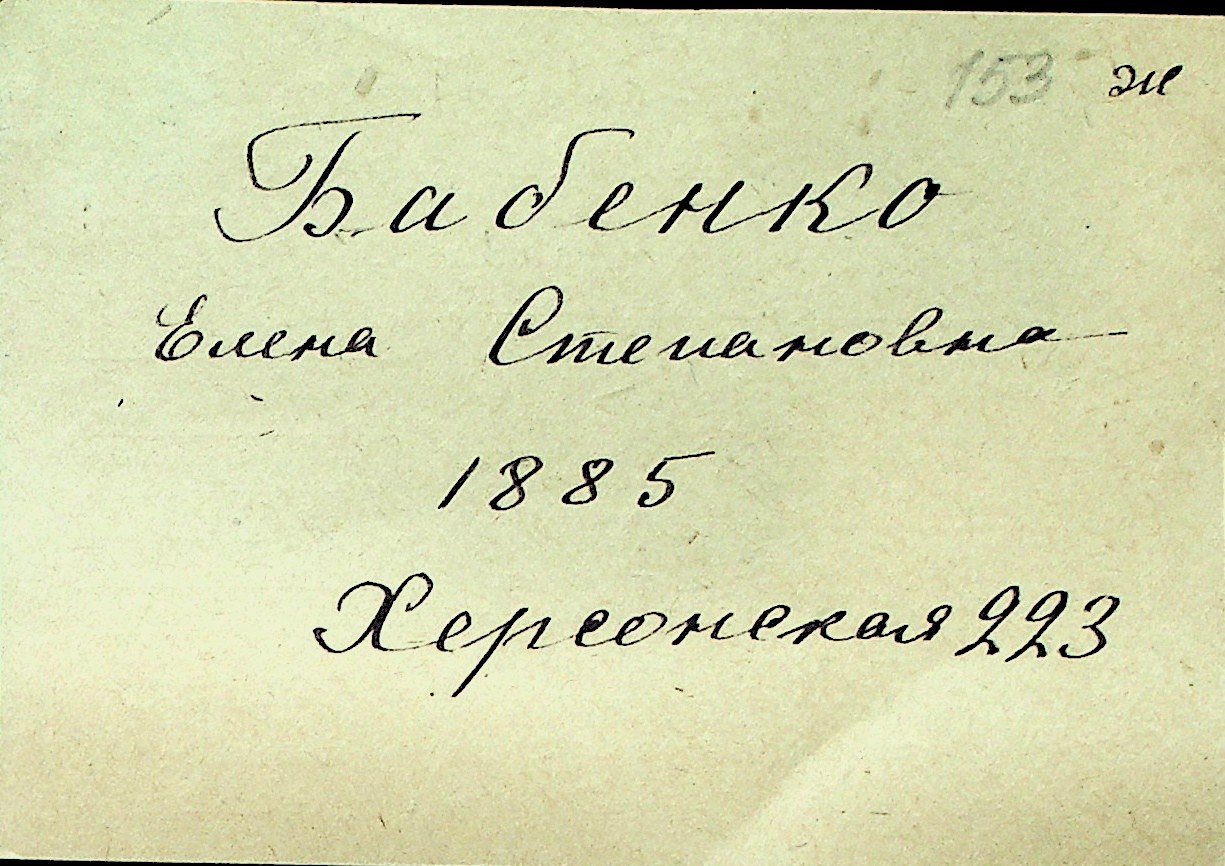 153 ж
Бабенко
Елена Степановна
1885
Херсонская 223